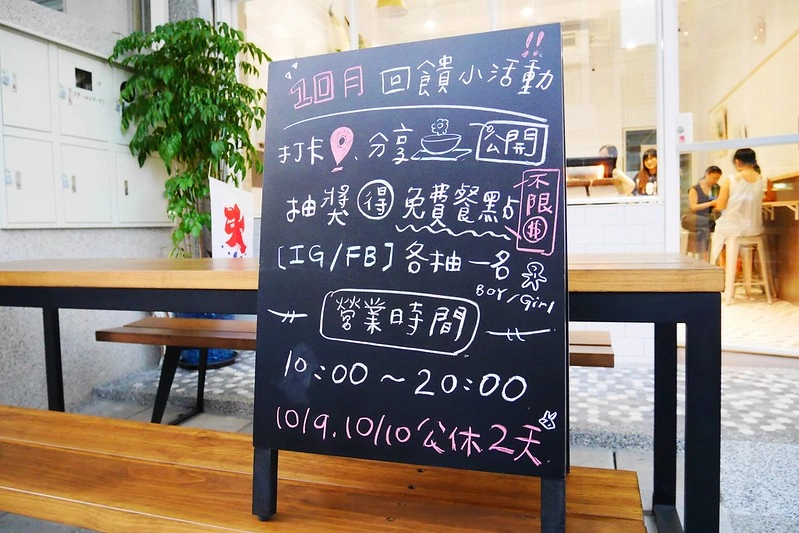 10月 回饋小活動!!
打卡、分享 公開
抽獎 得 免費餐點 不限$
[IG/FB] 各抽一名
BOY/Girl
營業時間
10:00～20:00
10/9.10/10公休2天